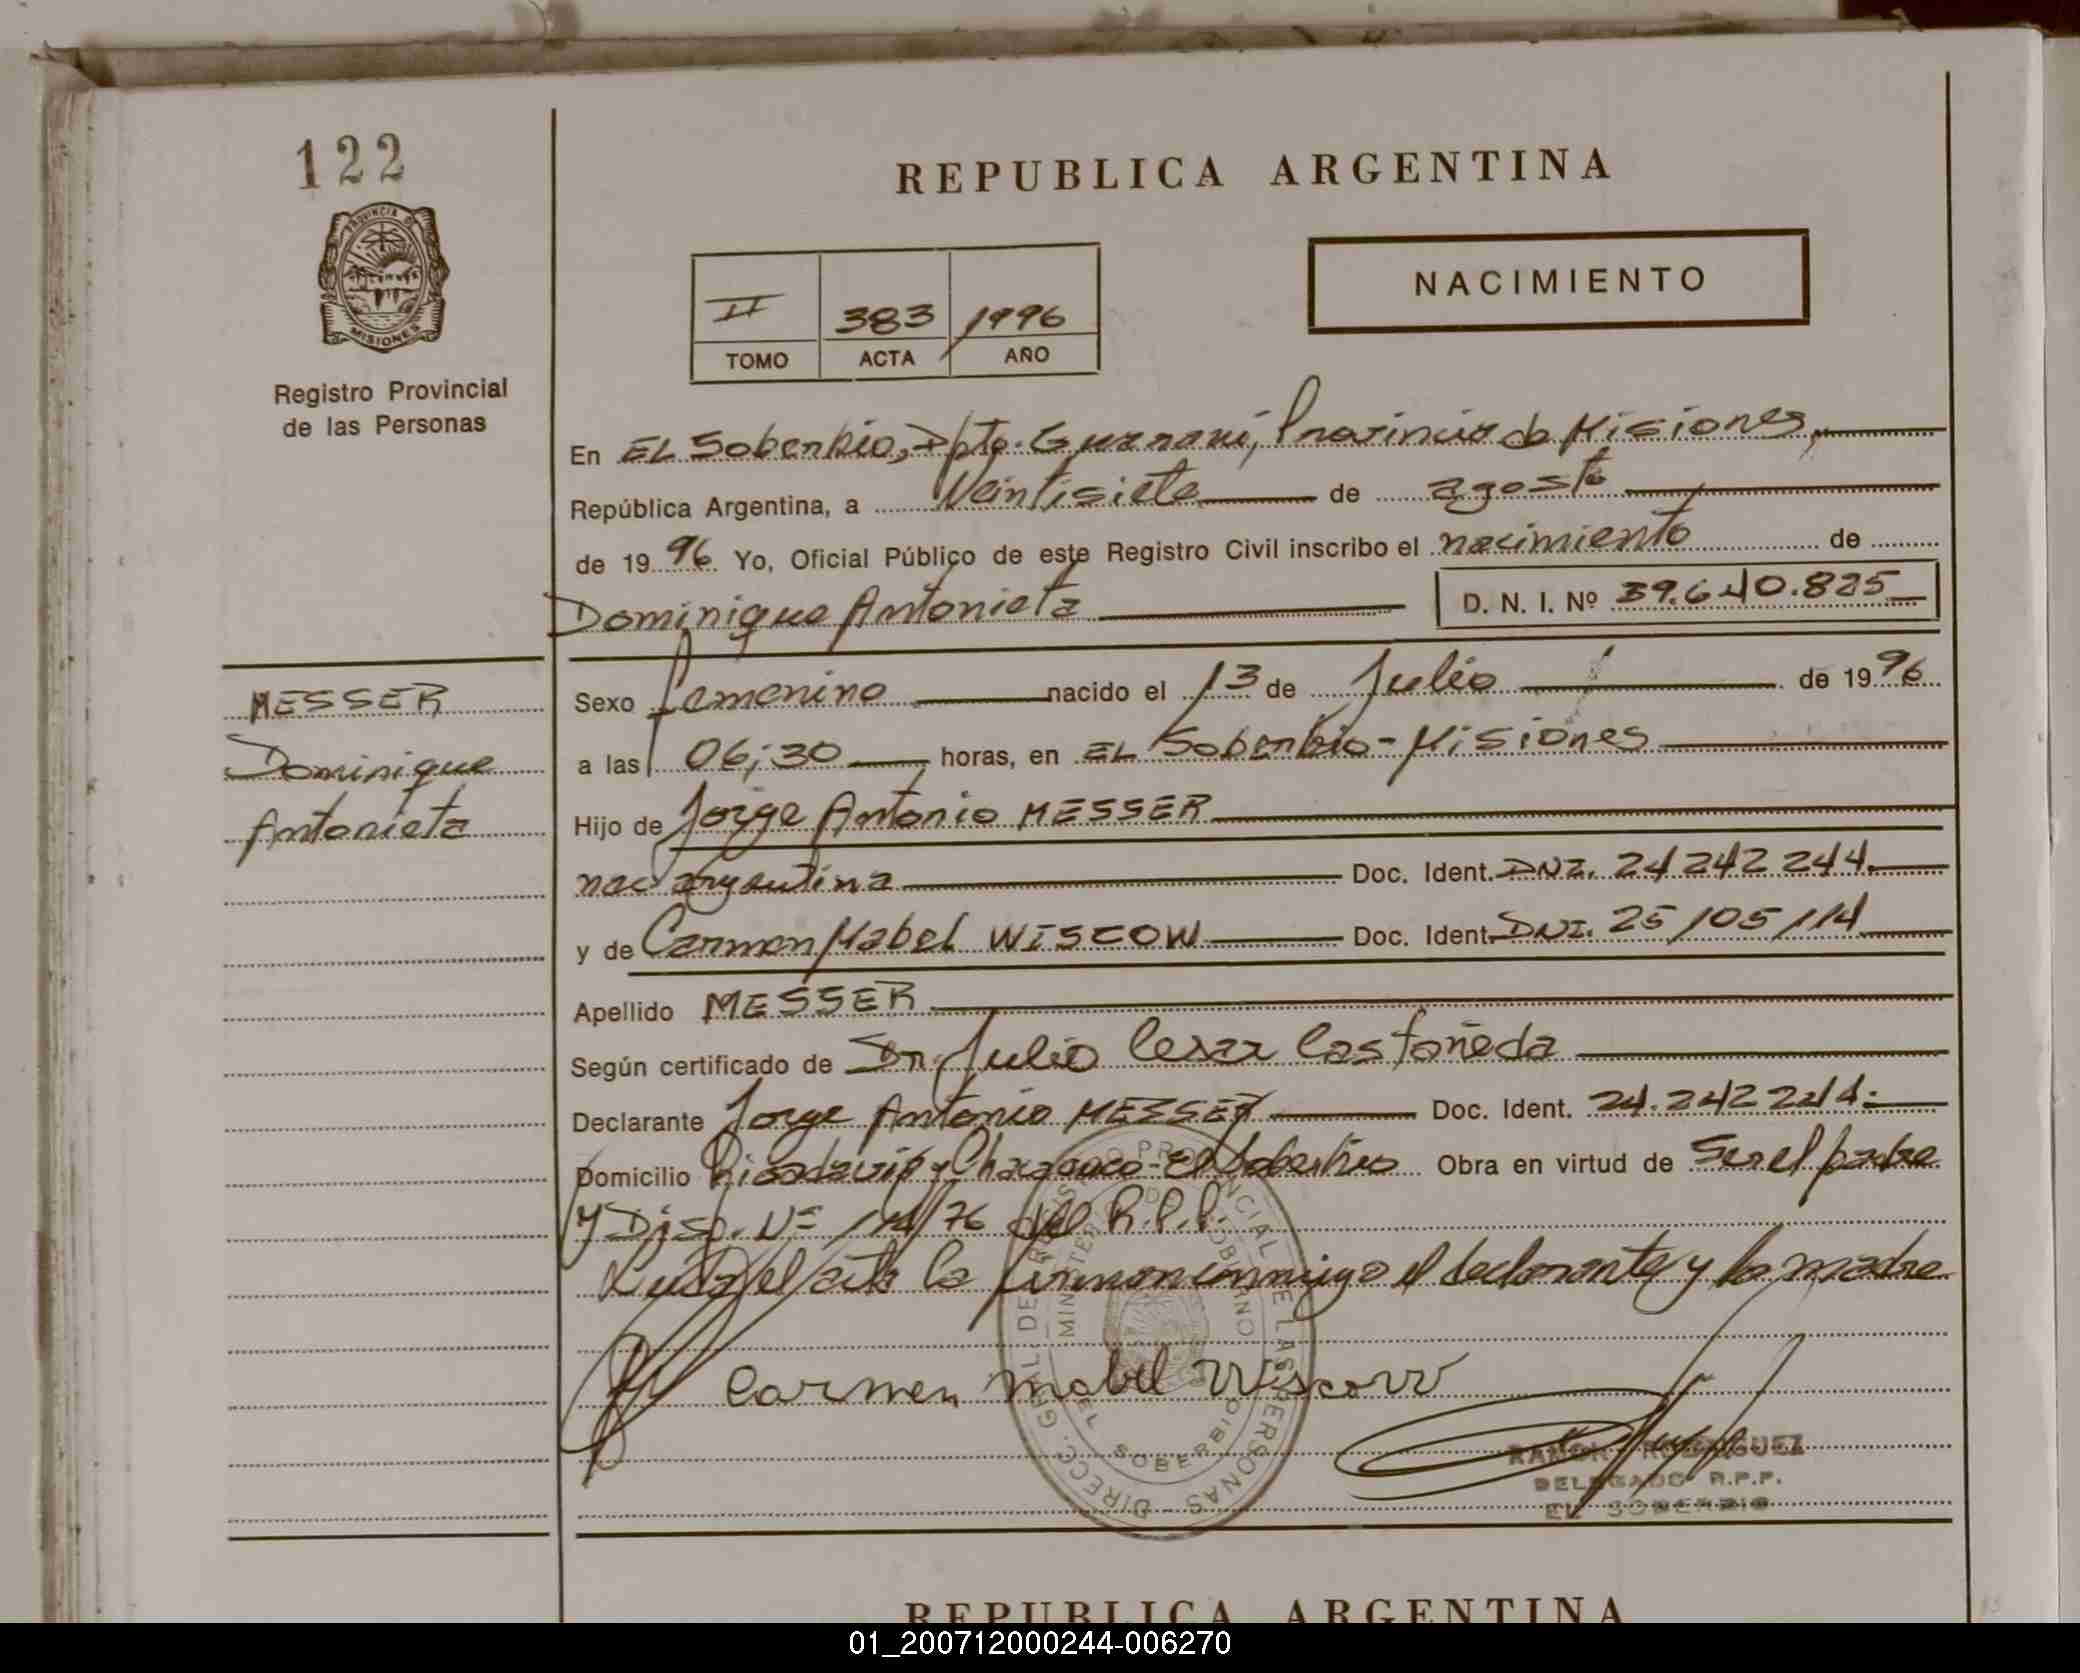 122
REPUBLICA ARGENTINA
PROVINCIA DE
MISIONES
Registro Provincial
de las Personas
II 383 1996
TOMO ACTA AÑO
NACIMIENTO
En EL Soberbio, Dpto. Guarani, Provincia de Misiones,
República Argentina, a Veintisiete de agosto
de 1996 Yo, Oficial Público de este Registro Civil inscribo el nacimiento de
Dominique Antonieta D. N. I. Nº 39.640.825
MESSER
Dominique
Antonieta
Sexo femenino nacido el 13 de Julio de 1996
a las 06;30 horas, en EL Soberbio - Misiones
Hijo de Jorge Antonio MESSER
nac argentina Doc. Ident. DNI. 24 242 244.
y de Carmen Mabel WISCOW Doc. Ident. DNI. 25/105/114
Apellido MESSER
Según certificado de Dr. Julio Cesar Castañeda
Declarante Jorge Antonio MESSER Doc. Ident. 24.242 244.
Domicilio Rivadavia y Chacabuco - El Soberbio Obra en virtud de Ser el padre
y Disp. Nº 114/76 del R.P.P.
Leida el acta la firman conmigo el declarante y la madre
Carmen Mabel Wiscow
DIRECC. GRAL. DE REGISTRO PROVINCIAL DE LAS PERSONAS
MINISTERIO DE GOBIERNO
EL SOBERBIO
RAMON RODRIGUEZ
DELEGADO R.P.P.
EL SOBERBIO
REPUBLICA ARGENTINA
01_200712000244-006270